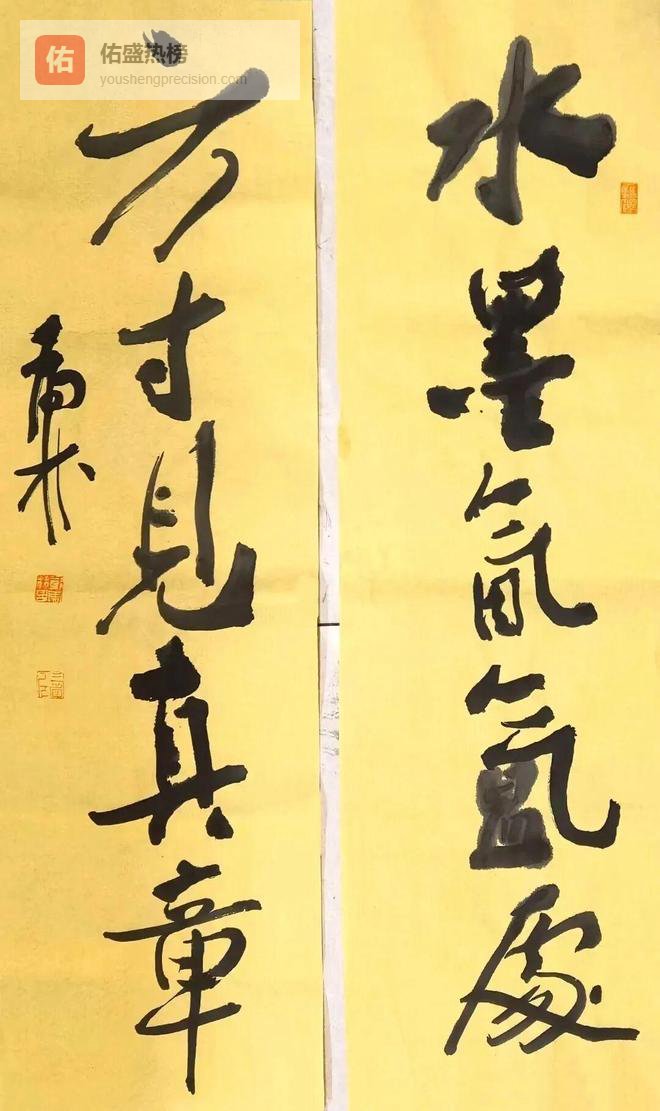 佑 佑盛热榜
youshengprecision.com
水墨氤氲處
方寸見真章